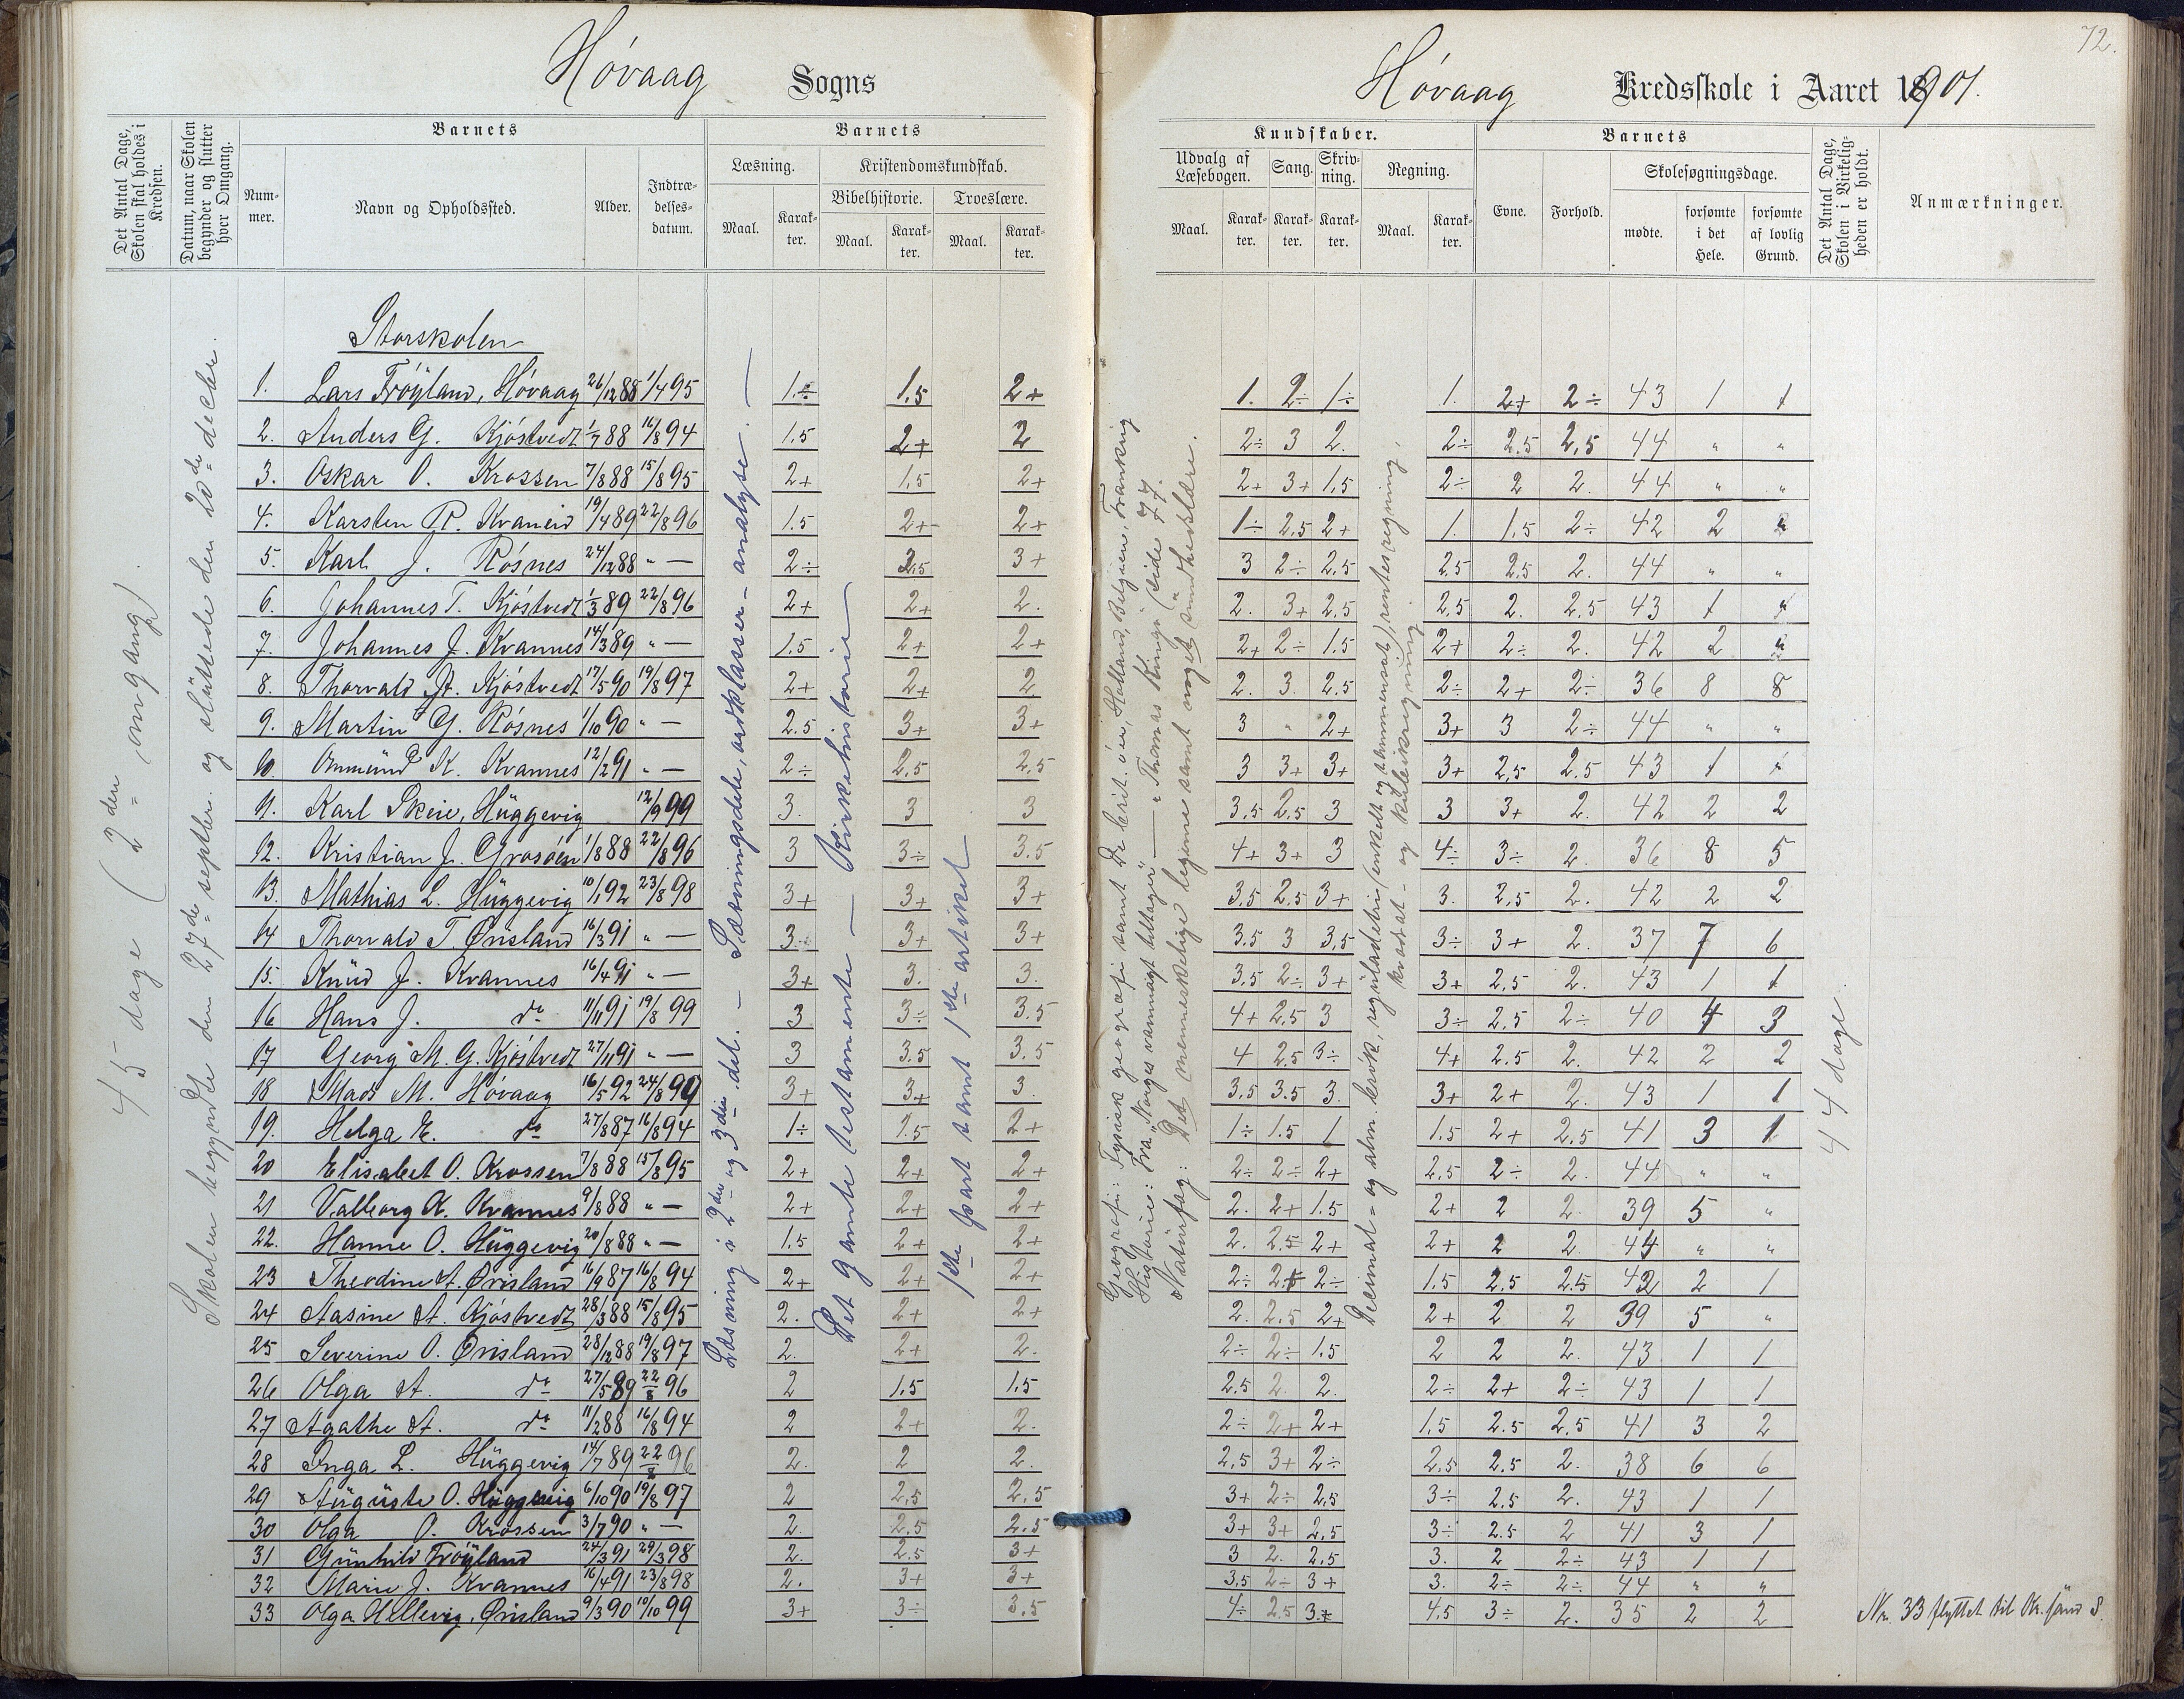 72.
Høvaag Sogns
Høvaag Kredsskole i Aaret 1901.
Det Antal Dage, Skolen skal holdes i Kredsen.
Datum, naar Skolen begynder og slutter hver Omgang.
Barnets
Nummer.
Navn og Opholdssted.
Alder.
Indtrædelsesdatum.
Barnets
Læsning.
Maal.
Karakter.
Kristendomskundskab.
Bibelhistorie.
Maal.
Karakter.
Troeslære.
Maal.
Karakter.
Kundskaber.
Udvalg af Læsebogen.
Maal.
Karakter.
Sang.
Karakter.
Skrivning.
Karakter.
Regning.
Maal.
Karakter.
Barnets
Evne.
Forhold.
Skolesøgningsdage.
mødte.
forsømte i det Hele.
forsømte af lovlig Grund.
Det Antal Dage, Skolen i Virkeligheden er holdt.
Anmærkninger.
45 dage (2den omgang).
Skolen begyndte den 27de septbr. og sluttede den 20de decbr.
Læsning i 2den og 3den del. – Sætningsdele, ordklasser – analyse. –
Det gamle testamente – Kirkehistorie
1ste part samt 1ste artikel
Geografi: Fysisk geografi samt De brit. øer, Holland, Belgien, Frankrig
Historie: Fra "Norges vanmagt tiltager" — "Thomas Konge" (side 77.
Naturfag: Det menneskelige legeme samt noget sundhedslære.
Decimal- og alm. brøk, reguladetri (enkelt og sammensat), rentesregning, kvadrat- og kubikregning.
44 dage.
Storskolen
1. Lars Frøyland, Høvaag 26/12 88 1/4 95 1.÷ 1.5 2+ 1. 2÷ 1÷ 1. 2+ 2÷ 43 1 1
2. Anders G. Kjøstvedt 1/7 88 16/8 94 1.5 2+ 2 2÷ 3 2. 2÷ 2.5 2,5 44 " "
3. Oskar O. Krossen 7/8 88 15/8 95 2+ 1,5 2+ 2+ 3+ 1,5 2÷ 2 2. 44 " "
4. Karsten R. Kvaneid 19/4 89 22/8 96 1.5 2+ 2+ 1÷ 2.5 2+ 1. 1,5 2÷ 42 2 "
5. Karl J. Røsnes 24/12 88 " — 2÷ 2,5 3+ 3 2÷ 2.5 2.5 2.5 2. 44 " "
6. Johannes T. Kjøstvedt 1/3 89 22/8 96 2+ 2+ 2. 2. 3+ 2.5 2.5 2. 2.5 43 1 "
7. Johannes J. Kvannes 14/3 89 " — 1.5 2+ 2+ 2+ 2÷ 1.5 2+ 2÷ 2. 42 2 "
8. Thorvald A. Kjøstvedt 17/5 90 19/8 97 2+ 2+ 2 2. 3. 2.5 2÷ 2+ 2÷ 36 8 8
9. Martin G. Røsnes 1/10 90 " — 2.5 3+ 3+ 3 " 2+ 3+ 3 2÷ 44 " "
10. Ommund K. Kvannes 12/2 91 " — 2÷ 2.5 2.5 3 3+ 3+ 3+ 2,5 2.5 43 1 1
11. Karl Skeie, Huggevig 12/9 99 3. 3 3 3.5 2.5 3 3 3+ 2. 42 2 2
12. Kristian J. Grosøen 1/8 88 22/8 96 3 3÷ 3.5 4+ 3+ 3 4÷ 3÷ 2. 36 8 5
13. Mathias L. Huggevig 10/1 92 23/8 98 3+ 3+ 3+ 3.5 2.5 3+ 3. 2,5 2. 42 2 2
14 Thorvald T. Ørisland 16/3 91 " — 3. 3+ 3+ 3.5 3 3,5 3÷ 3+ 2. 37 7 6
15. Knud J. Kvannes 16/4 91 " — 3+ 3. 3. 3.5 2÷ 3+ 3+ 2,5 2. 43 1 1
16 Hans J. do 11/11 91 19/8 99 3 3÷ 3.5 4+ 2.5 3 3÷ 2.5 2÷ 40 4 3
17 Georg M. G. Kjøstvedt 27/11 91 " — 3 3.5 3.5 4 2.5 3÷ 4+ 2.5 2. 42 2 2
18 Mads M. Høvaag 16/5 92 24/8 99 3+ 3+ 3. 3.5 3.5 3. 3+ 2+ 2. 43 1 1
19. Helga E. do 27/8 87 16/8 94 1÷ 1.5 2+ 1÷ 1.5 1 1.5 2+ 2.5 41 3 1
20 Elisabet O. Krossen 7/8 88 15/8 95 2+ 2+ 2+ 2÷ 2÷ 2+ 2,5 2÷ 2. 44 " "
21 Valborg K. Kvannes 9/8 88 " — 2+ 2+ 2+ 2. 2+ 1.5 2+ 2 2. 39 5 "
22. Hanne O. Huggevig 20/8 88 " — 1.5 2+ 2+ 2. 2.5 2+ 2+ 2 2. 44 " "
23 Theodine A. Ørisland 16/9 87 16/8 94 2+ 2+ 2+ 2÷ 2+ 2÷ 1.5 2.5 2.5 42 2 1
24 Aasine A. Kjøstvedt 28/3 88 15/8 95 2. 2+ 2+ 2. 2.5 2+ 2+ 2 2 39 5 "
25 Severine O. Ørisland 28/12 88 19/8 97 2. 2+ 2. 2÷ 2÷ 1.5 2 2 2. 43 1 1
26 Olga A. do 27/5 89 22/8 96 2 1.5 1.5 2.5 2. 2. 2÷ 2+ 2÷ 43 1 1
27 Agathe A. do 11/2 88 16/8 94 2 2+ 2. 2÷ 2+ 2+ 1,5 2.5 2,5 41 3 2
28 Inga L. Huggevig 14/7 89 22/8 96 2. 2 2. 2,5 3+ 2÷ 2.5 2.5 2. 38 6 6
29 Auguste O. Huggevig 6/10 90 19/8 97 2 2,5 2,5 3+ 2÷ 2,5 3÷ 2.5 2. 43 1 1
30 Olga O. Krossen 3/7 90 " — 2. 2.5 2.5 3+ 3+ 2,5 3÷ 2.5 2 41 3 1
31 Gunhild Frøyland 24/3 91 29/3 98 2. 2.5 3+ 3 2. 2,5 3. 2 2÷ 43 1 1
32 Marie J. Kvannes 16/4 91 23/8 98 2. 3+ 3+ 3,5 2÷ 3+ 3. 2÷ 2÷ 44 " "
33 Olga Hellevig, Ørisland 9/3 90 10/10 99 3+ 3÷ 3.5 4÷ 2.5 3+ 4.5 3÷ 2. 35 2 2 Nr. 33 flyttet til Kr.sand S.